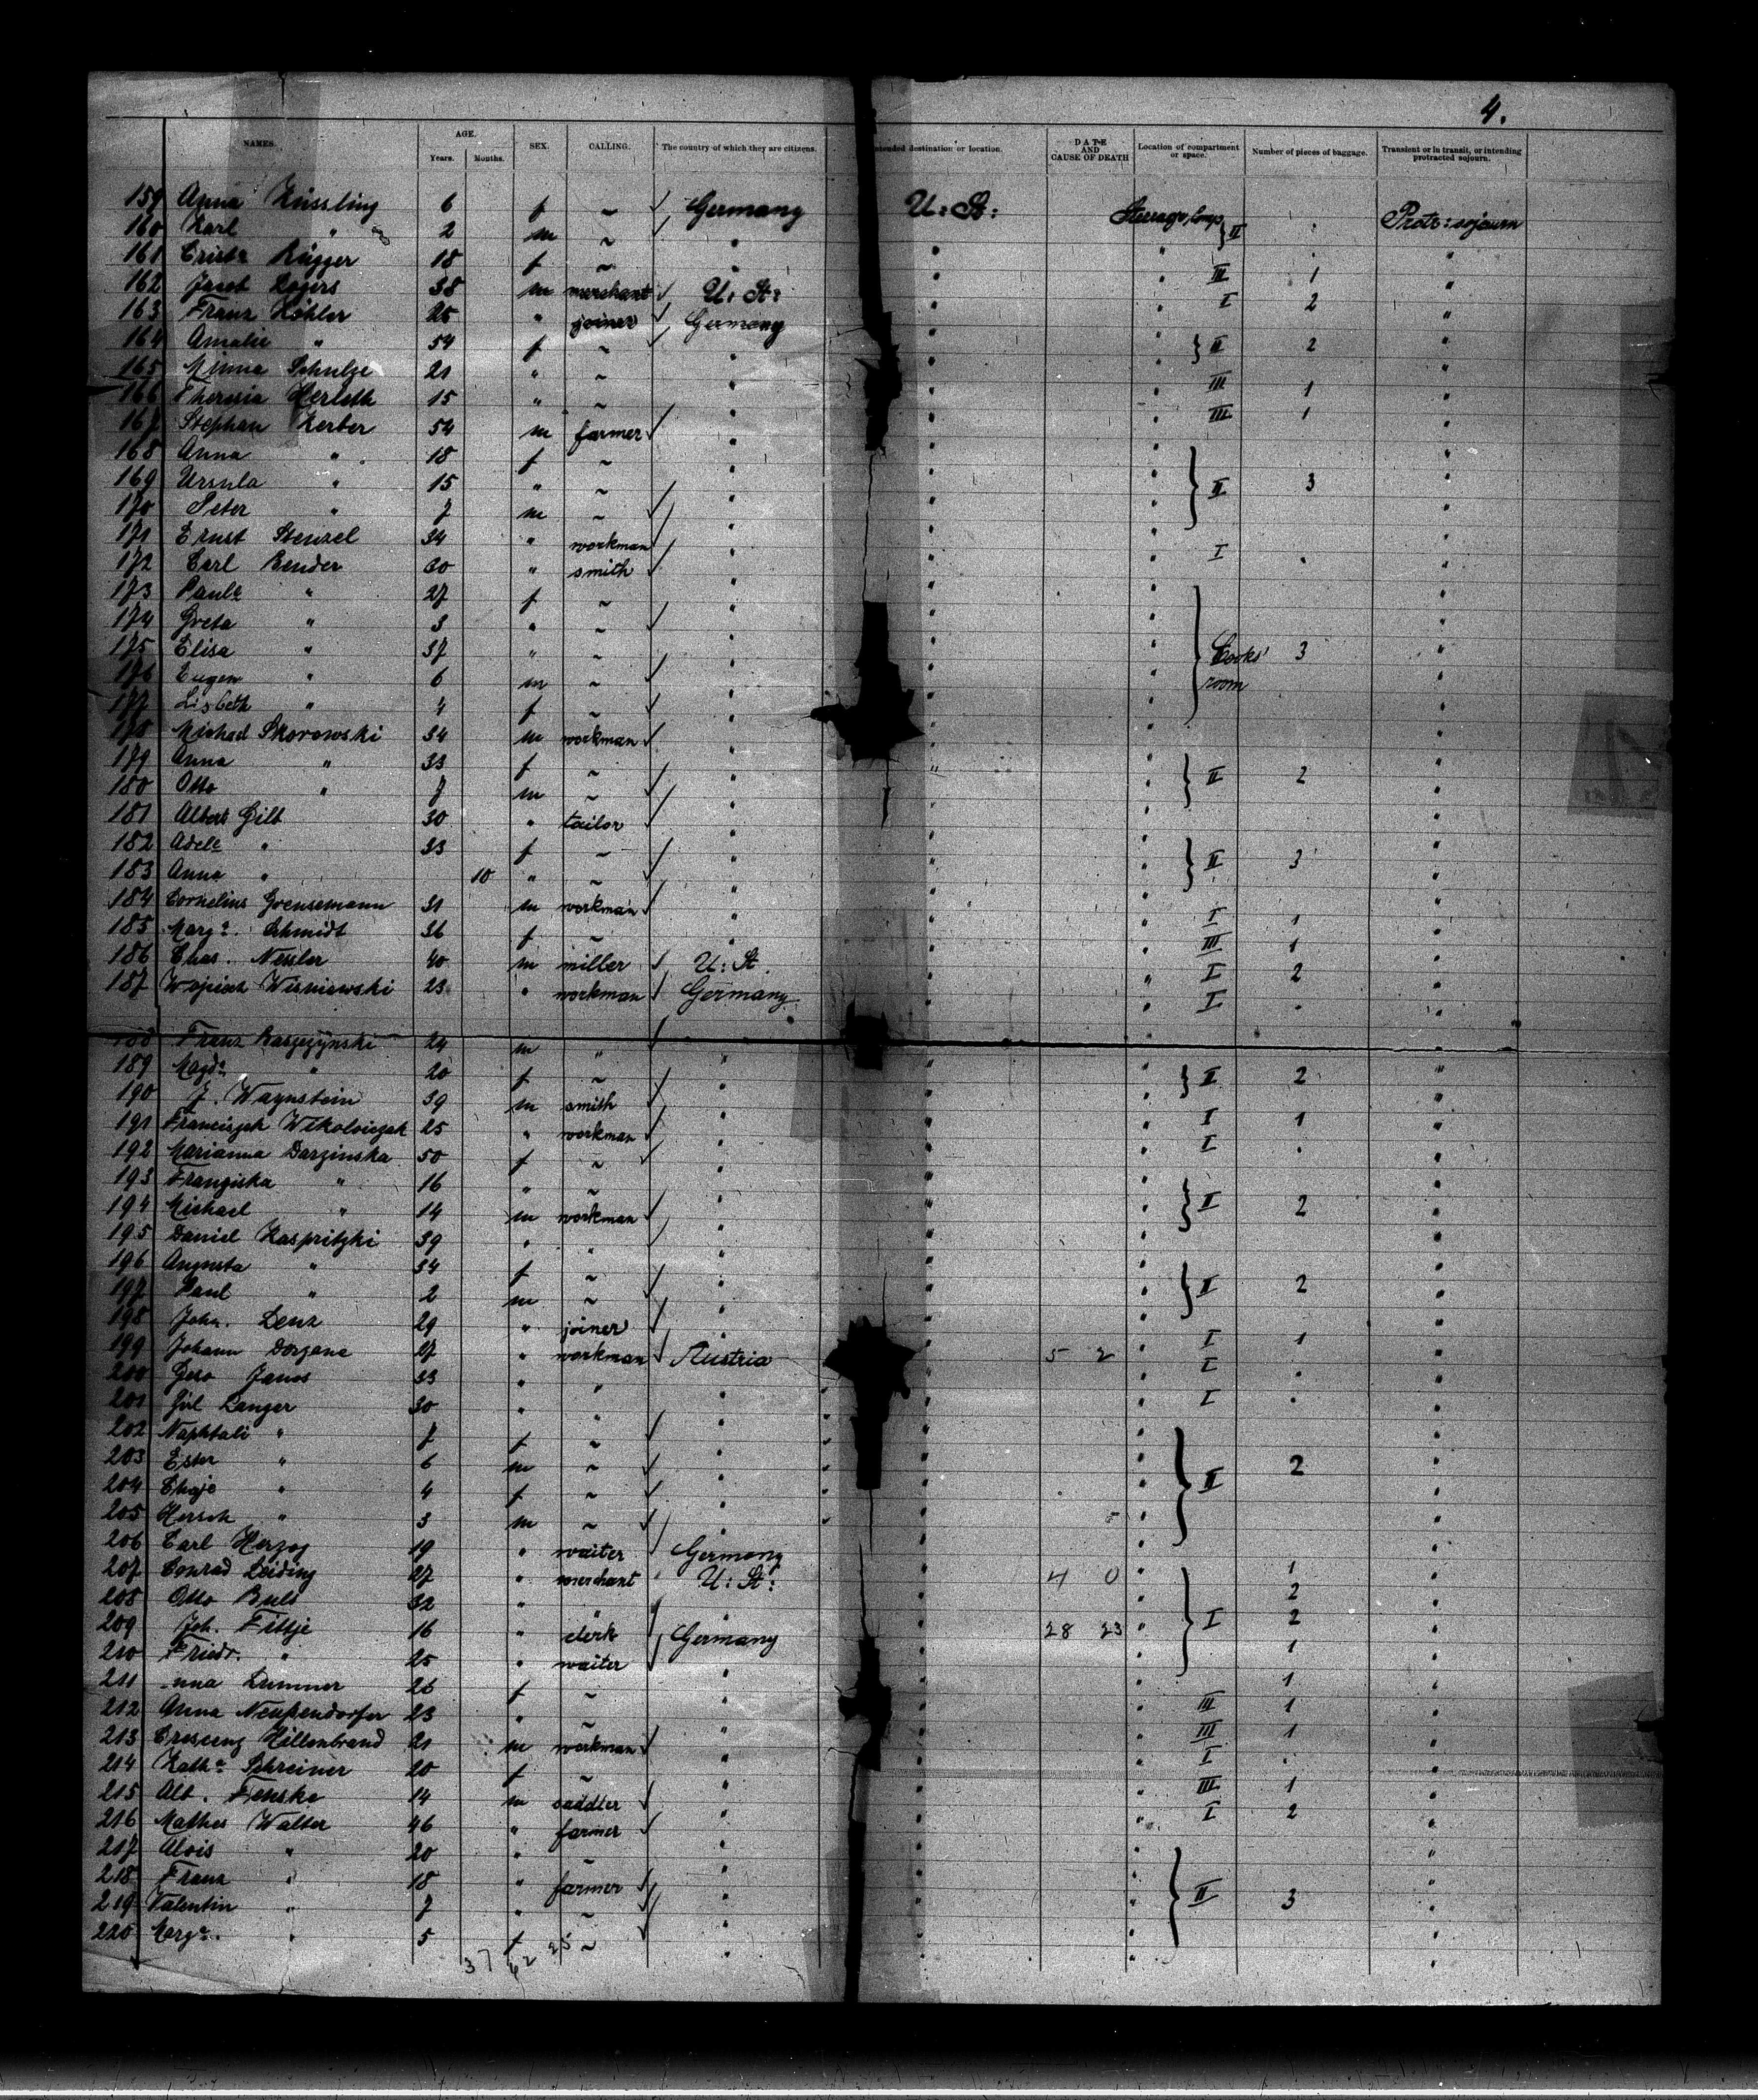 4.
NAMES. AGE. Years. Months. SEX. CALLING. The country of which they are citizens. Intended destination or location. DATE AND CAUSE OF DEATH Location of compartment or space. Number of pieces of baggage. Transient or in transit, or intending protracted sojourn.
159 Anna Kissling 6 f ~ Germany U: St: Steerage, comp II Protr: sojourn
160 Karl " 2 m ~ "
161 Crista Rügger 18 f ~ " III 1 "
162 Jacob Rogers 38 m merchant U: St: I 2 "
163 Franz Köhler 25 " joiner Germany "
164 Amalie " 54 f ~ " II 2 "
165 Minna Schulze 21 " ~ " III 1 "
166 Theresia Herleth 15 " ~ " III 1 "
167 Stephan Kerber 54 m farmer "
168 Anna " 18 f ~ "
169 Ursula " 15 " ~ " II 3 "
170 Peter " 7 m ~ "
171 Ernst Stenzel 34 " workman " I "
172 Carl Bender 30 " smith "
173 Paula " 27 f ~ "
174 Greta " 3 " ~ "
175 Elisa " 37 " ~ " Cooks' room 3 "
176 Eugen " 6 m ~ "
177 Lisbeth " 4 f ~ "
178 Michael Skorowski 34 m workman "
179 Anna " 33 f ~ " II 2 "
180 Otto " 7 m ~ "
181 Albert Gilt 30 " tailor "
182 Adele " 33 f ~ " II 3 "
183 Anna " 10 " ~ "
184 Cornelius Grensemann 31 m workman " I 1 "
185 Marga. Schmidt 36 f ~ " III 1 "
186 Chas. Nessler 40 m miller U: St. I 2 "
187 Wojciech Wisniewski 23 " workman Germany I "
188 Franz 24 m " "
189 Magda " 20 f ~ " II 2 "
190 J. Waynstein 39 m smith " I 1 "
191 Franciszek 25 " workman " I "
192 Marianna Darzinska 50 f ~ "
193 Franziska " 16 " ~ " II 2 "
194 Michael " 14 m workman "
195 Daniel Kaspritzki 39 " " "
196 Augusta " 34 f ~ " II 2 "
197 Paul " 2 m ~ "
198 John. Lenz 29 " joiner " I 1 "
199 Johann 27 " workman Austria 5 2 I "
200 Janos 33 " " " I "
201 Langer 30 " " "
202 Naphtali " 7 f ~ "
203 Ester " 6 m ~ " II 2 "
204 Chaje " 4 f ~ "
205 Hersch " 3 m ~ "
206 Carl Herzog 19 " waiter Germany 1 "
207 Conrad Leiding 27 " merchant U: St: 4 0 2 "
208 Otto Buls 32 " " " I 2 "
209 Joh. Fittje 16 " clerk Germany 28 23 1 "
210 Friedr. " 25 " waiter " 1 "
211 Lummer 26 f ~ " III 1 "
212 Anna Neupendorfer 23 " ~ " III 1 "
213 Crescenz Hillenbrand 21 m workman " I "
214 Katha Schreiner 20 f ~ " III 1 "
215 Alb. Fenske 14 m saddler " I 2 "
216 Mathes Walter 46 " farmer "
217 Alois " 20 " ~ "
218 Franz " 18 " farmer " II 3 "
219 Valentin " 7 " ~ "
220 Marga. " 5 f ~ "
37 62 25